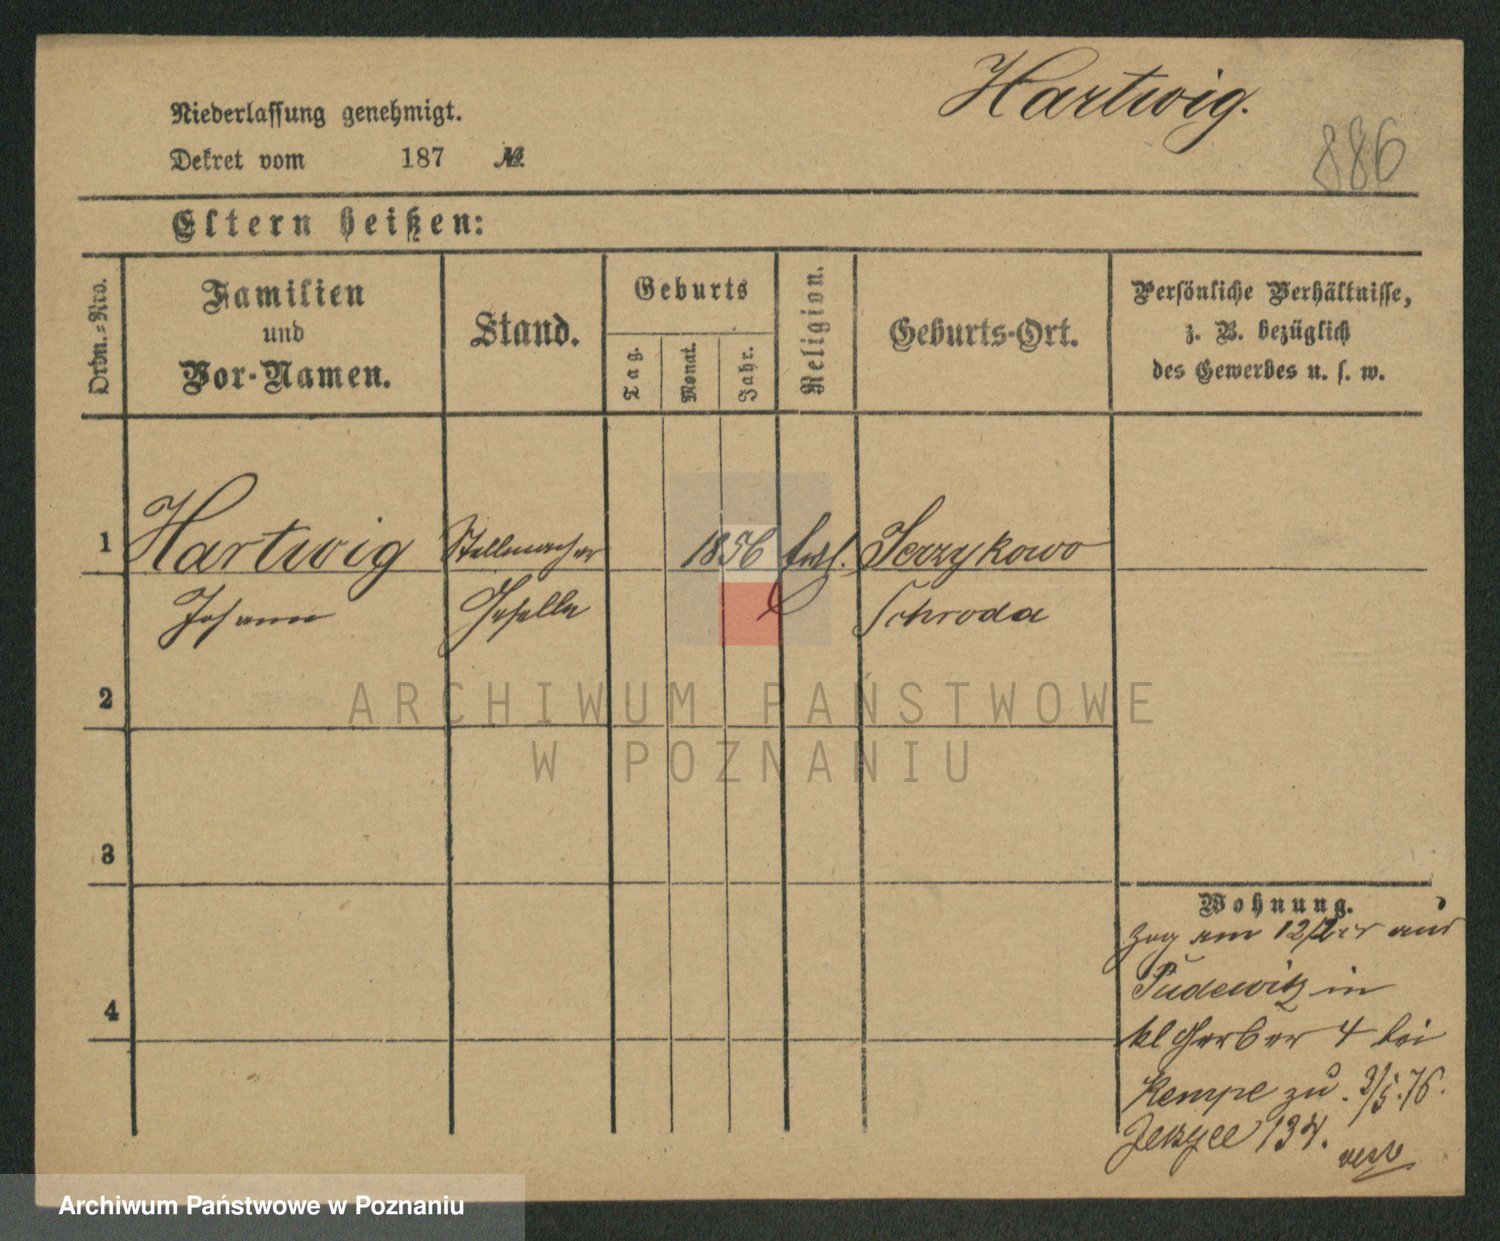 Hartwig.
886
Niederlassung genehmigt.
Dekret vom 187 №
Eltern heißen:
Ordn.-Nro.
Familien
und
Vor-Namen.
Stand.
Geburts
Tag.
Monat.
Jahr.
Religion.
Geburts-Ort.
Persönliche Verhältnisse,
z. B. bezüglich
des Gewerbes u. s. w.
1 Hartwig Stellmacher 1856 Jerzykowo
Johann Geselle Schroda
2
3
4
Wohnung.
zog am aus
Pudewitz in
kl Gerber 4 bei
Kempe zu. 3/5.76.
134.
ARCHIWUM PAŃSTWOWE
W POZNANIU
Archiwum Państwowe w Poznaniu